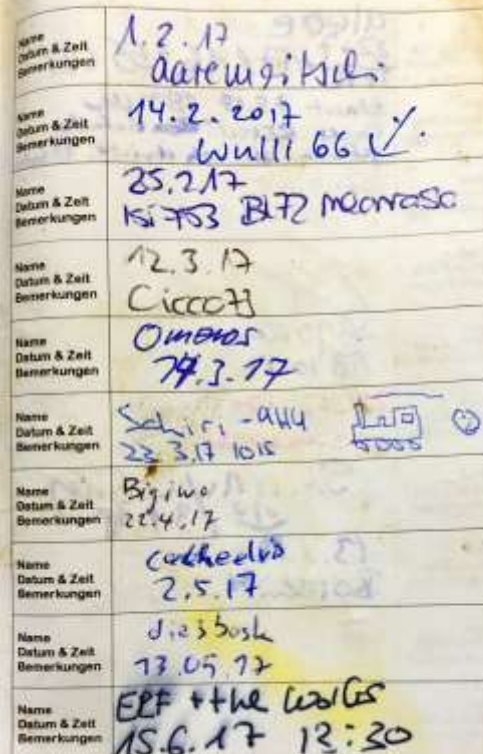 Name
Datum & Zeit
Bemerkungen
1.2.17
Name
Datum & Zeit
Bemerkungen
14.2.2017
Wulli 66
Name
Datum & Zeit
Bemerkungen
25.2.17
Name
Datum & Zeit
Bemerkungen
12.3.17
Cicco73
Name
Datum & Zeit
Bemerkungen
Omeros
14.3.17
Name
Datum & Zeit
Bemerkungen
Schiri-9HU
22.3.17 1015
Name
Datum & Zeit
Bemerkungen
Bigiwo
22.4.17
Name
Datum & Zeit
Bemerkungen
2.5.17
Name
Datum & Zeit
Bemerkungen
13.05.17
Name
Datum & Zeit
Bemerkungen
ERF + the
15.6.17 12:30